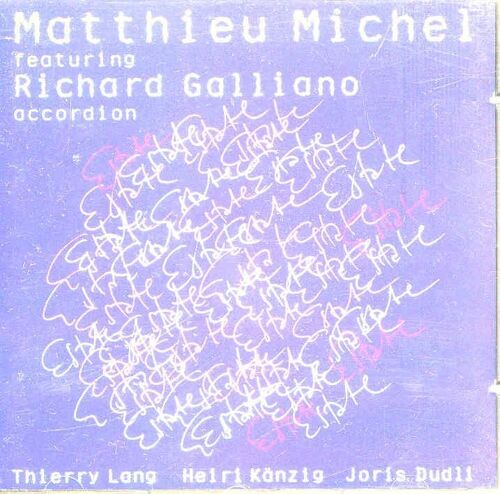 Matthieu Michel
featuring
Richard Galliano
accordion
Estate
Thierry Lang Heiri Känzig Joris Dudli